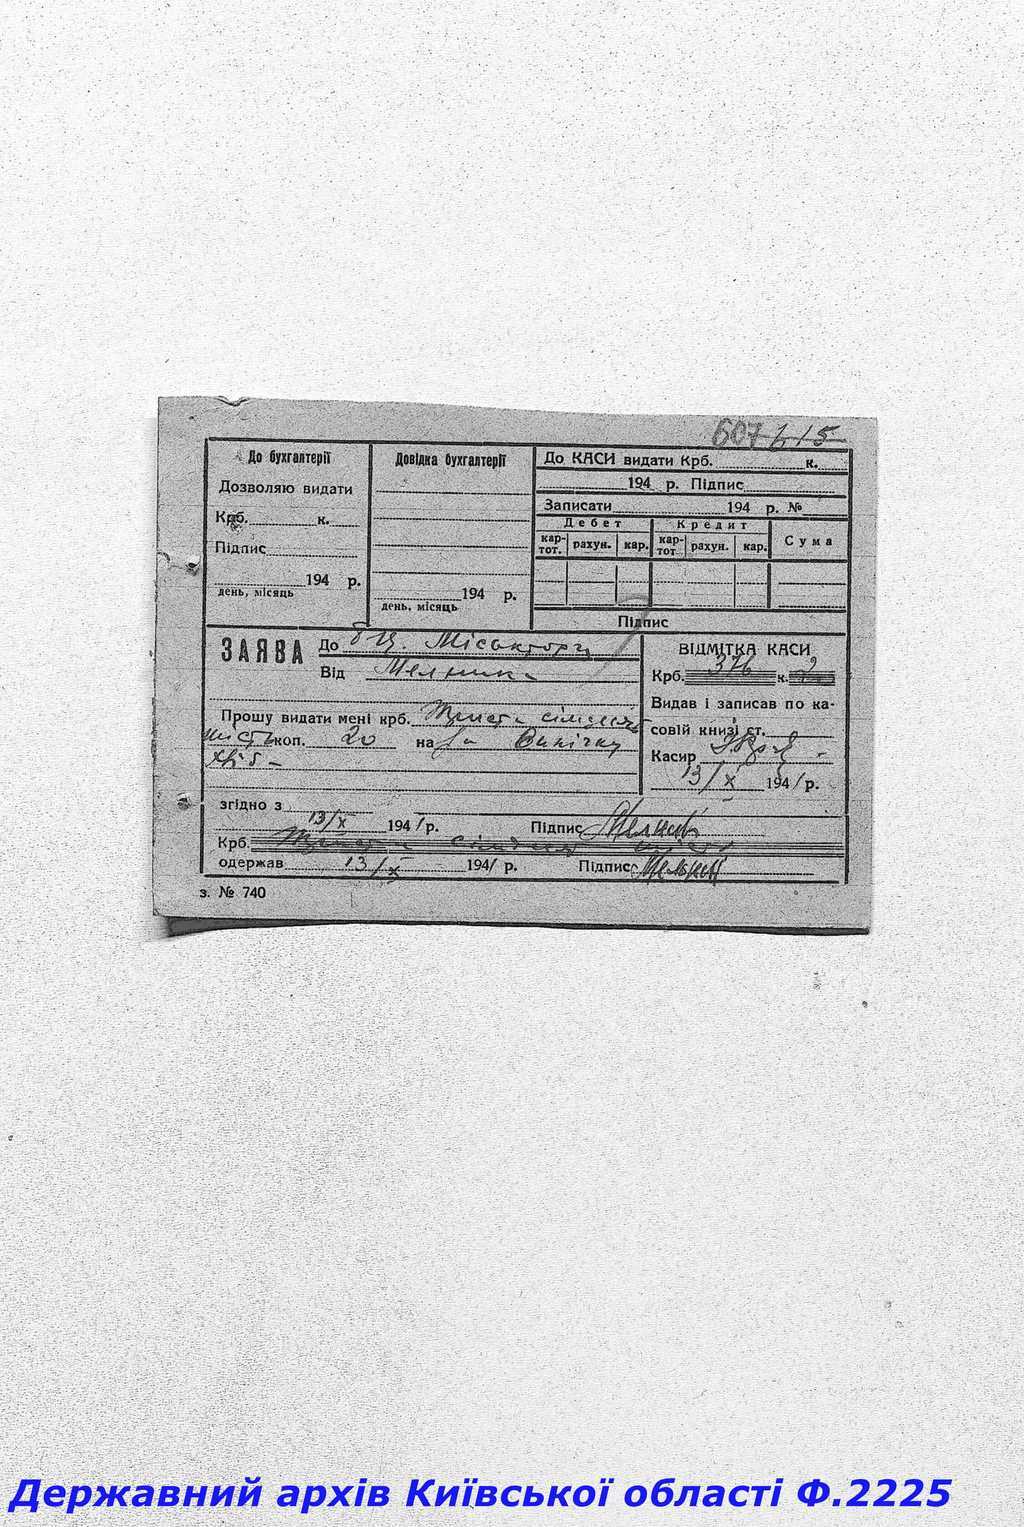 607 615
До бухгалтерії
Дозволяю видати
Крб. к.
Підпис
194 р.
день, місяць
Довідка бухгалтерії
194 р.
день, місяць
До КАСИ видати Крб. к.
194 р. Підпис
Записати 194 р. №
Дебет Кредит Сума
кар-тот. рахун. кар. кар-тот. рахун. кар.
Підпис
ЗАЯВА До Міськторгу
Від Мельника
Прошу видати мені крб. Триста сімдесят
шість коп. 20 на за Випічку
хліб
згідно з
13/X 1941 р. Підпис
Крб. Триста сімдесят шість
одержав 13/X 1941 р. Підпис
ВІДМІТКА КАСИ
Крб. 376 к. 2
Видав і записав по ка-
совій книзі ст.
Касир
13/X 1941 р.
з. № 740
Державний архів Київської області Ф.2225